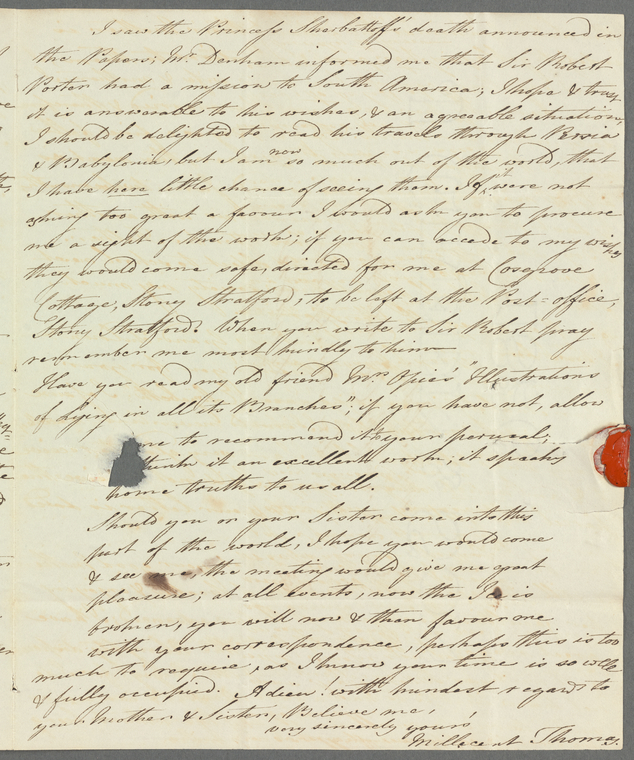 I saw the Princess Sherbattoff's death announced in
the Papers; Mr. Denham informed me that Sir Robert
Porter had a mission to South America; I hope & trust
it is answerable to his wishes, & an agreeable situation,
I should be delighted to read his travels through Persia
& Babylonia but I am now so much out of the world, that
I have here little chance of seeing them. If it were not
asking too great a favour I would ask you to procure
me a sight of the work; if you can accede to my wishes
they would come safe, directed for me at Cosgrove
Cottage, Stony Stratford, to be left at the Post-office,
Stony Stratford. When you write to Sir Robert pray
remember me most kindly to him
Have you read my old friend Mrs Opie's "Illustrations
of Lying in all its Branches"; if you have not, allow
me to recommend it to your perusal;
think it an excellent work; it speaks
home truths to us all.
Should you or your Sister come into this
part of the world, I hope you would come
& see me, the meeting would give me great
pleasure; at all events, now the Ice is
broken, you will now & then favour me
with your correspondence, perhaps this is too
much to require, as I know your time is so well
& fully occupied. Adieu! with kindest regards to
your Mother & Sister, Believe me,
very sincerely yours
Millecent Thomas.